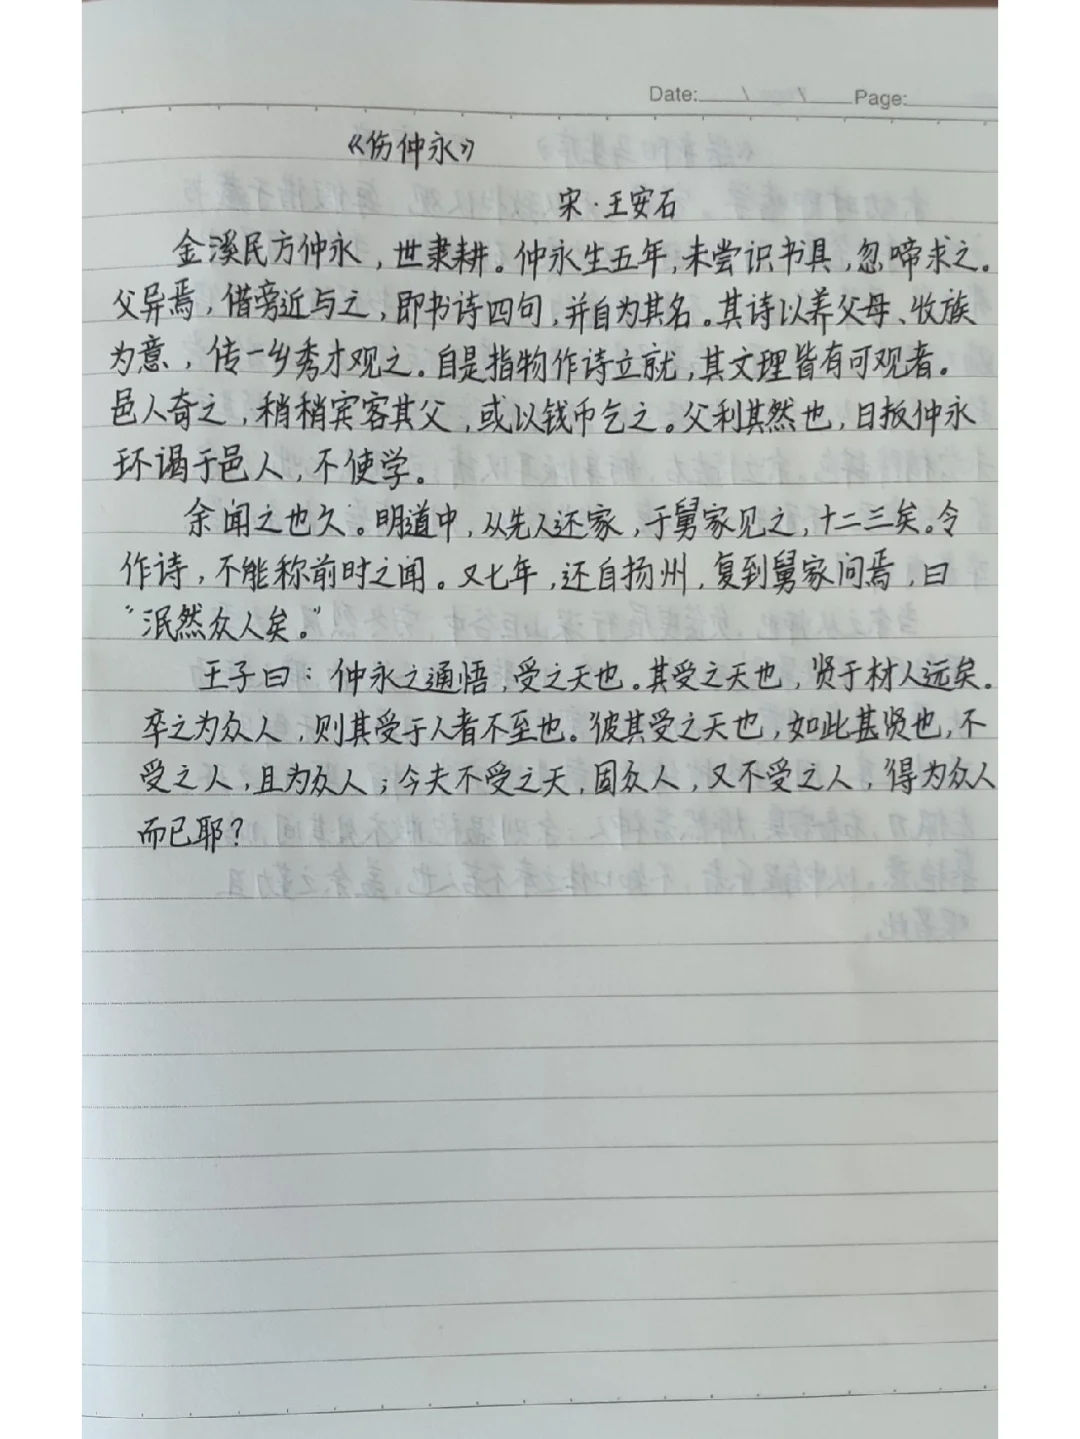 Date: / / Page:
《伤仲永》
宋·王安石
金溪民方仲永，世隶耕。仲永生五年，未尝识书具，忽啼求之。
父异焉，借旁近与之，即书诗四句，并自为其名。其诗以养父母、收族
为意，传一乡秀才观之。自是指物作诗立就，其文理皆有可观者。
邑人奇之，稍稍宾客其父，或以钱币乞之。父利其然也，日扳仲永
环谒于邑人，不使学。
余闻之也久。明道中，从先人还家，于舅家见之，十二三矣。令
作诗，不能称前时之闻。又七年，还自扬州，复到舅家问焉，曰
“泯然众人矣。”
王子曰：仲永之通悟，受之天也。其受之天也，贤于材人远矣。
卒之为众人，则其受于人者不至也。彼其受之天也，如此甚贤也，不
受之人，且为众人；今夫不受之天，固众人，又不受之人，得为众人
而已耶？